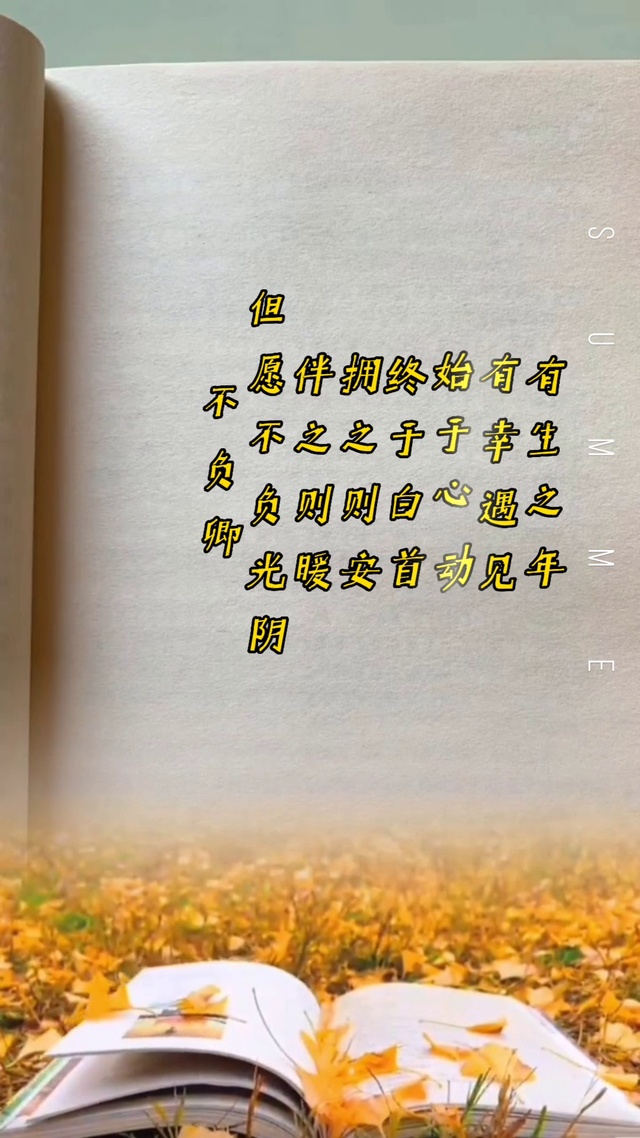 有生之年
有幸遇见
始于心动
终于白首
拥之则安
伴之则暖
但愿不负光阴
不负卿
SUMME